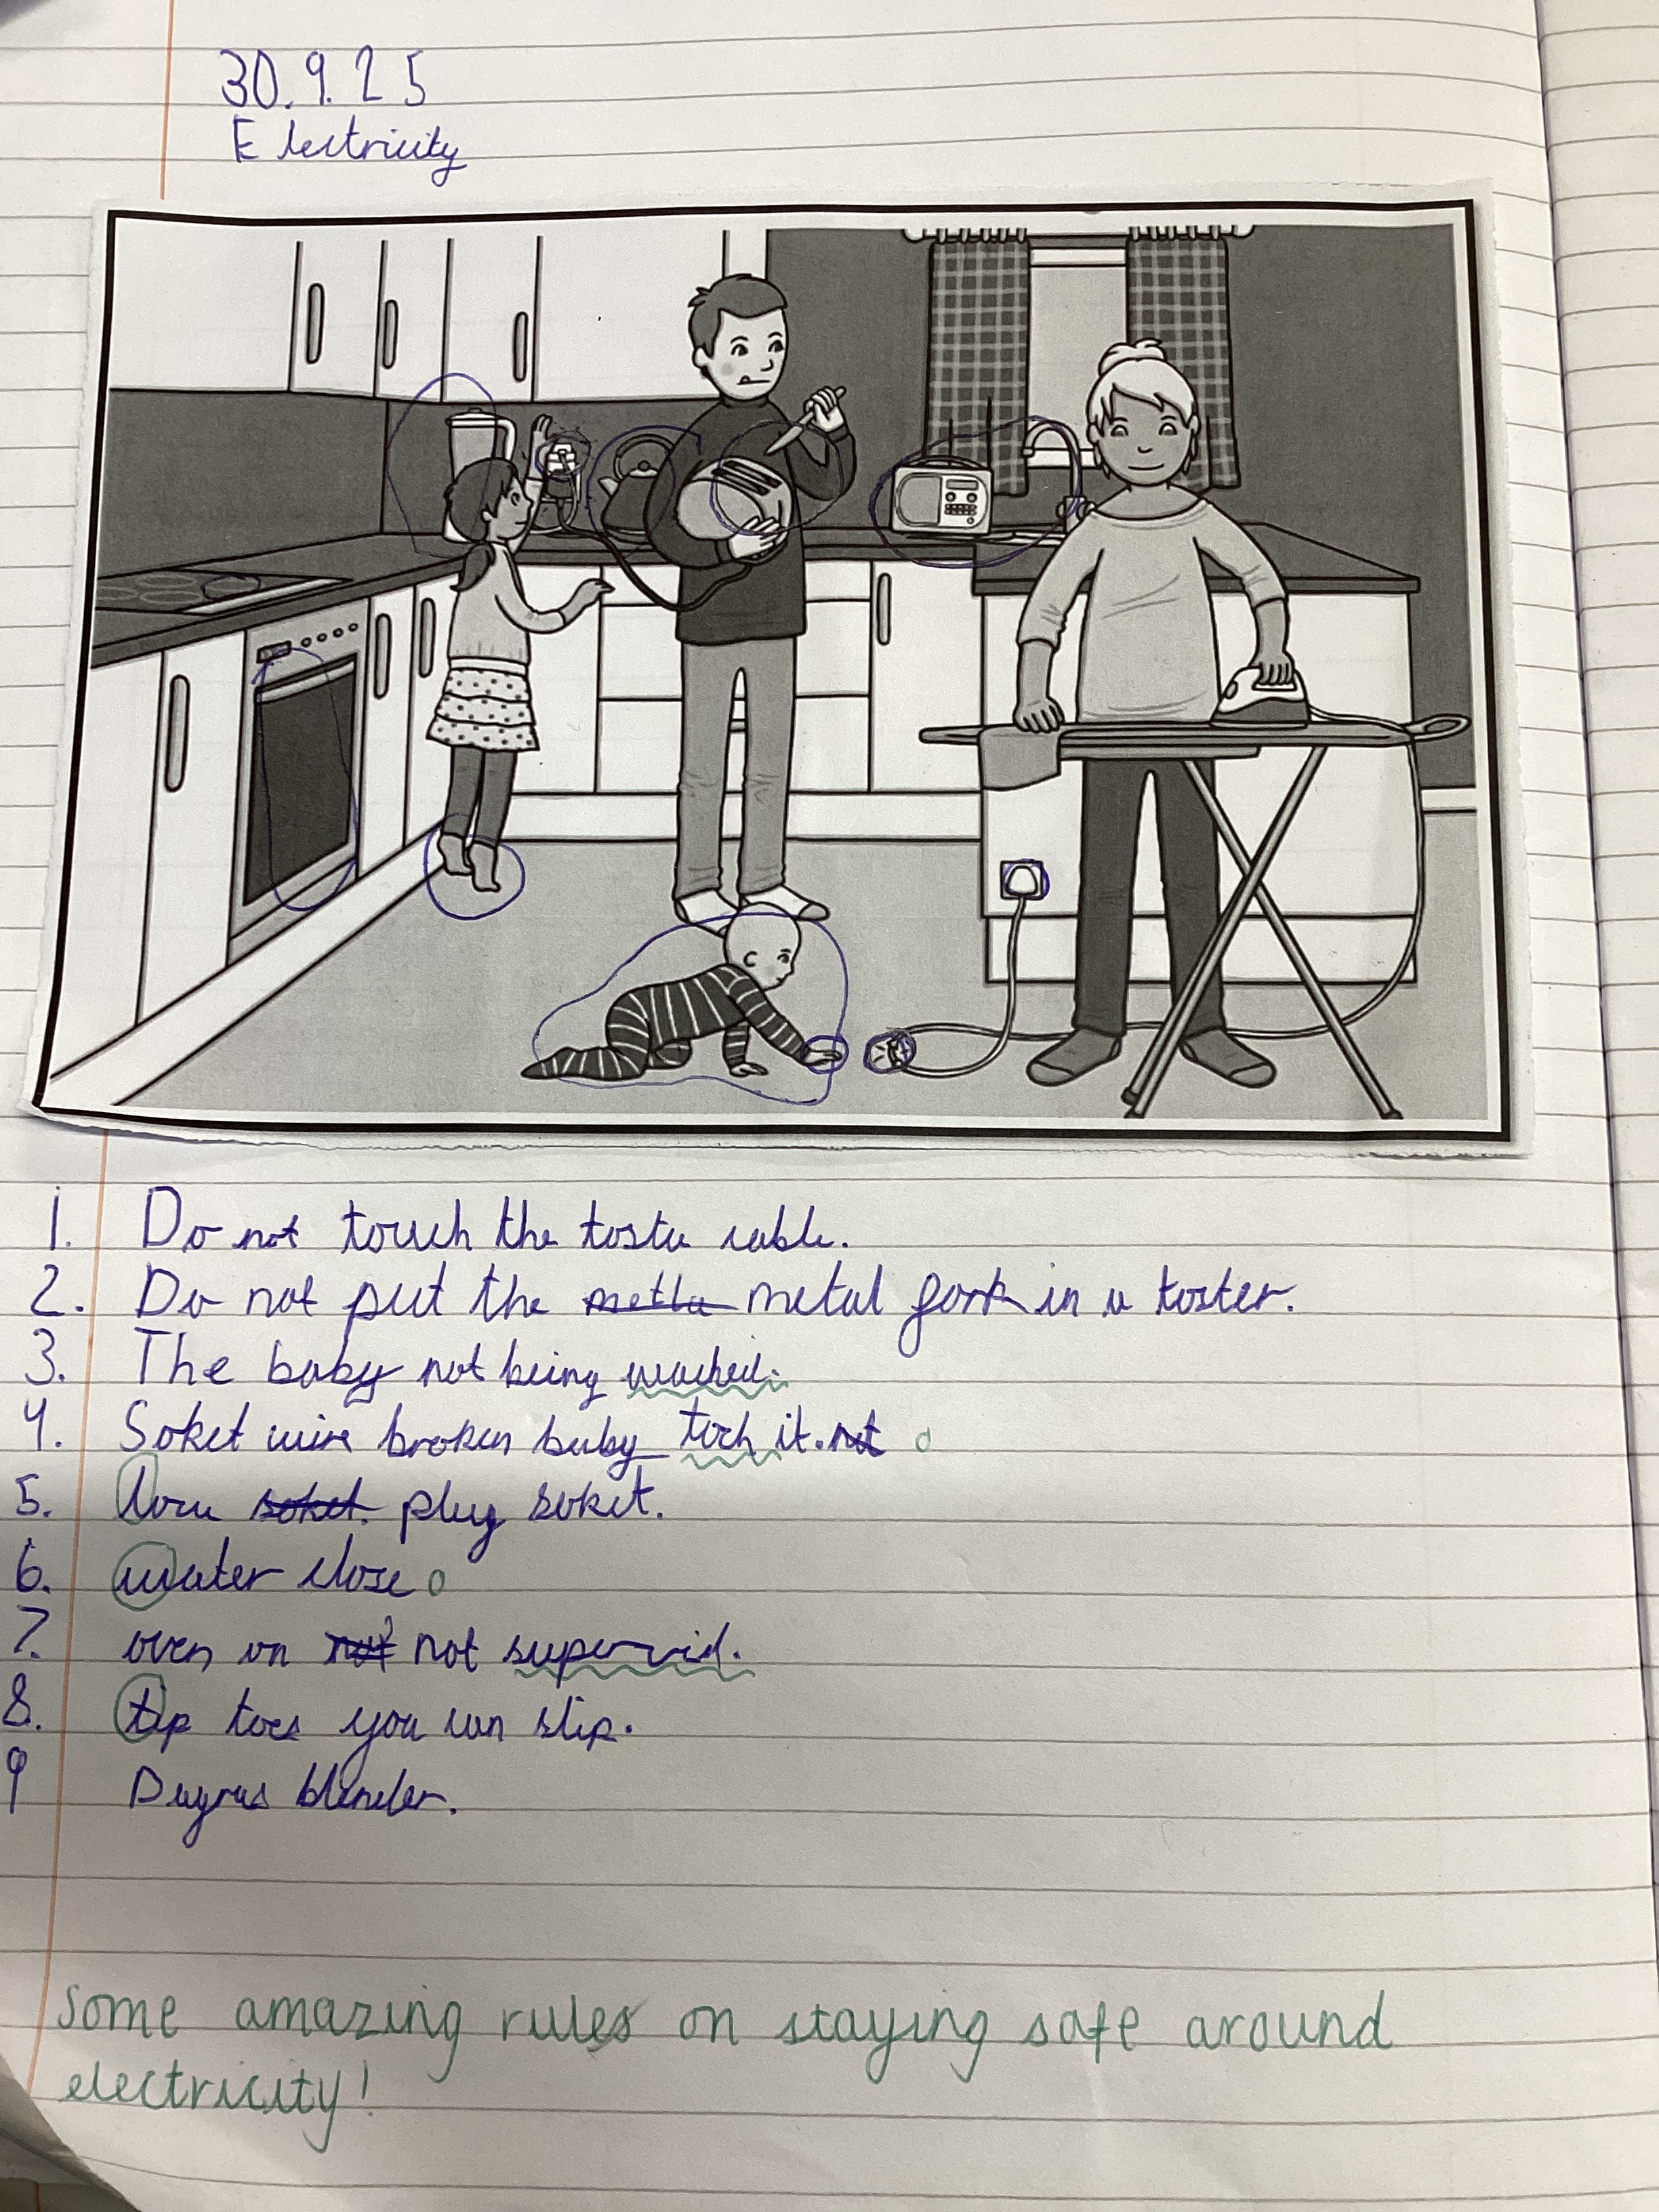 30.9.25
Electricity
1. Do not touch the toste cable.
2. Do not put the metla metal fork in a toster.
3. The baby not being wached.
4. Soket wire broken baby toch it. not
5. soket. plug soket.
6. water close
7. oven on not not supervid.
8. tip toes you can slip.
9 blender.
some amazing rules on staying safe around
electricity!